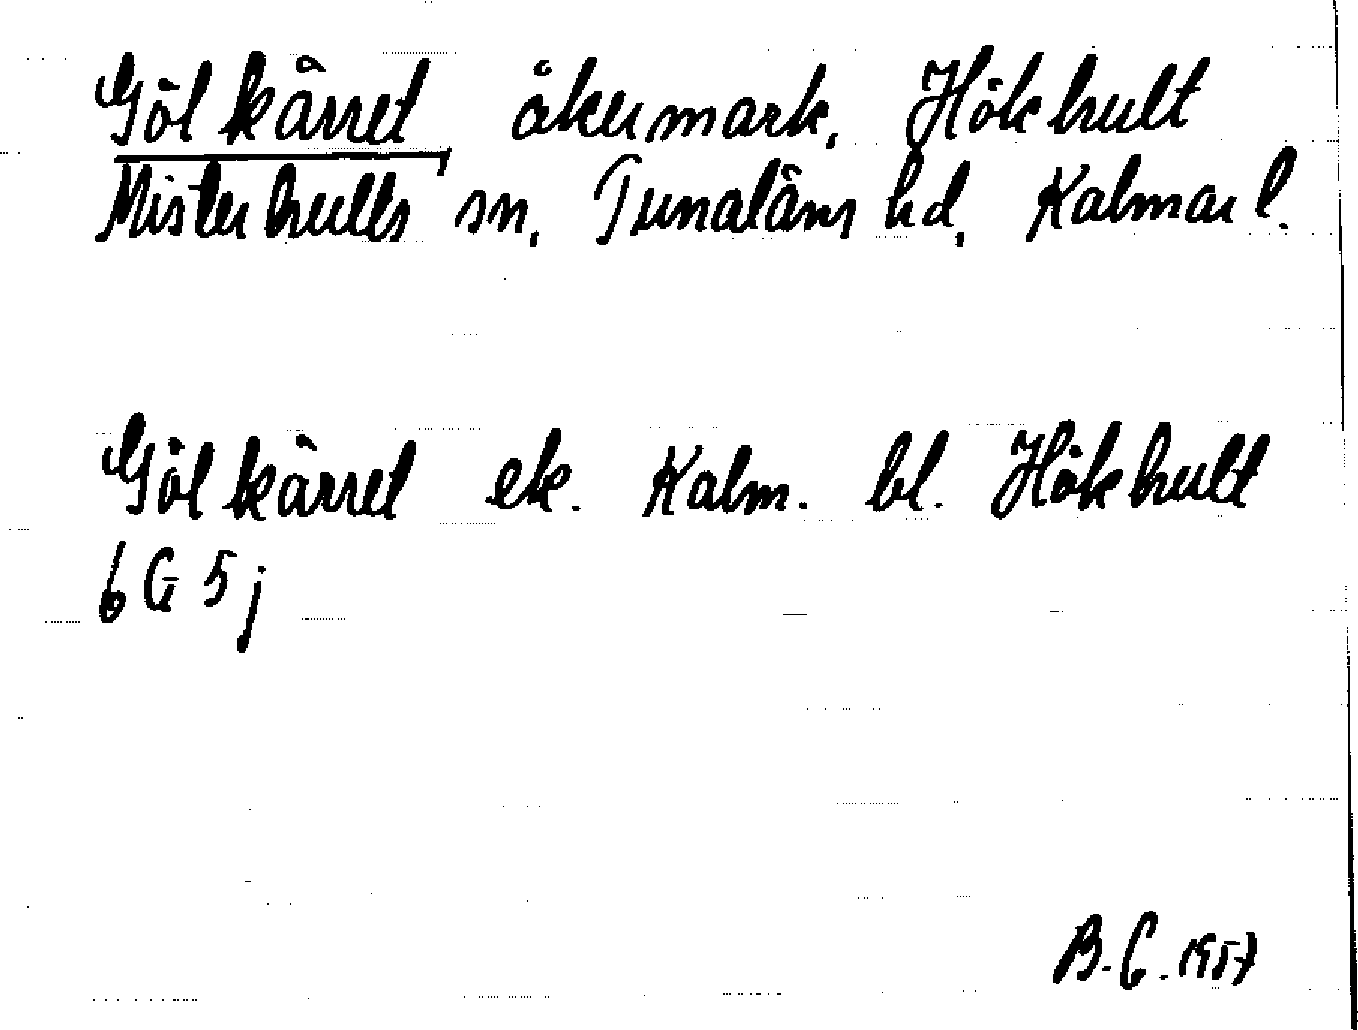 Gölkärret, åkermark, Hökhult
Misterhults sn, Tunaläns hd, Kalmar l.
Gölkärret ek. Kalm. bl. Hökhult
6G 5j
B.G. 1957